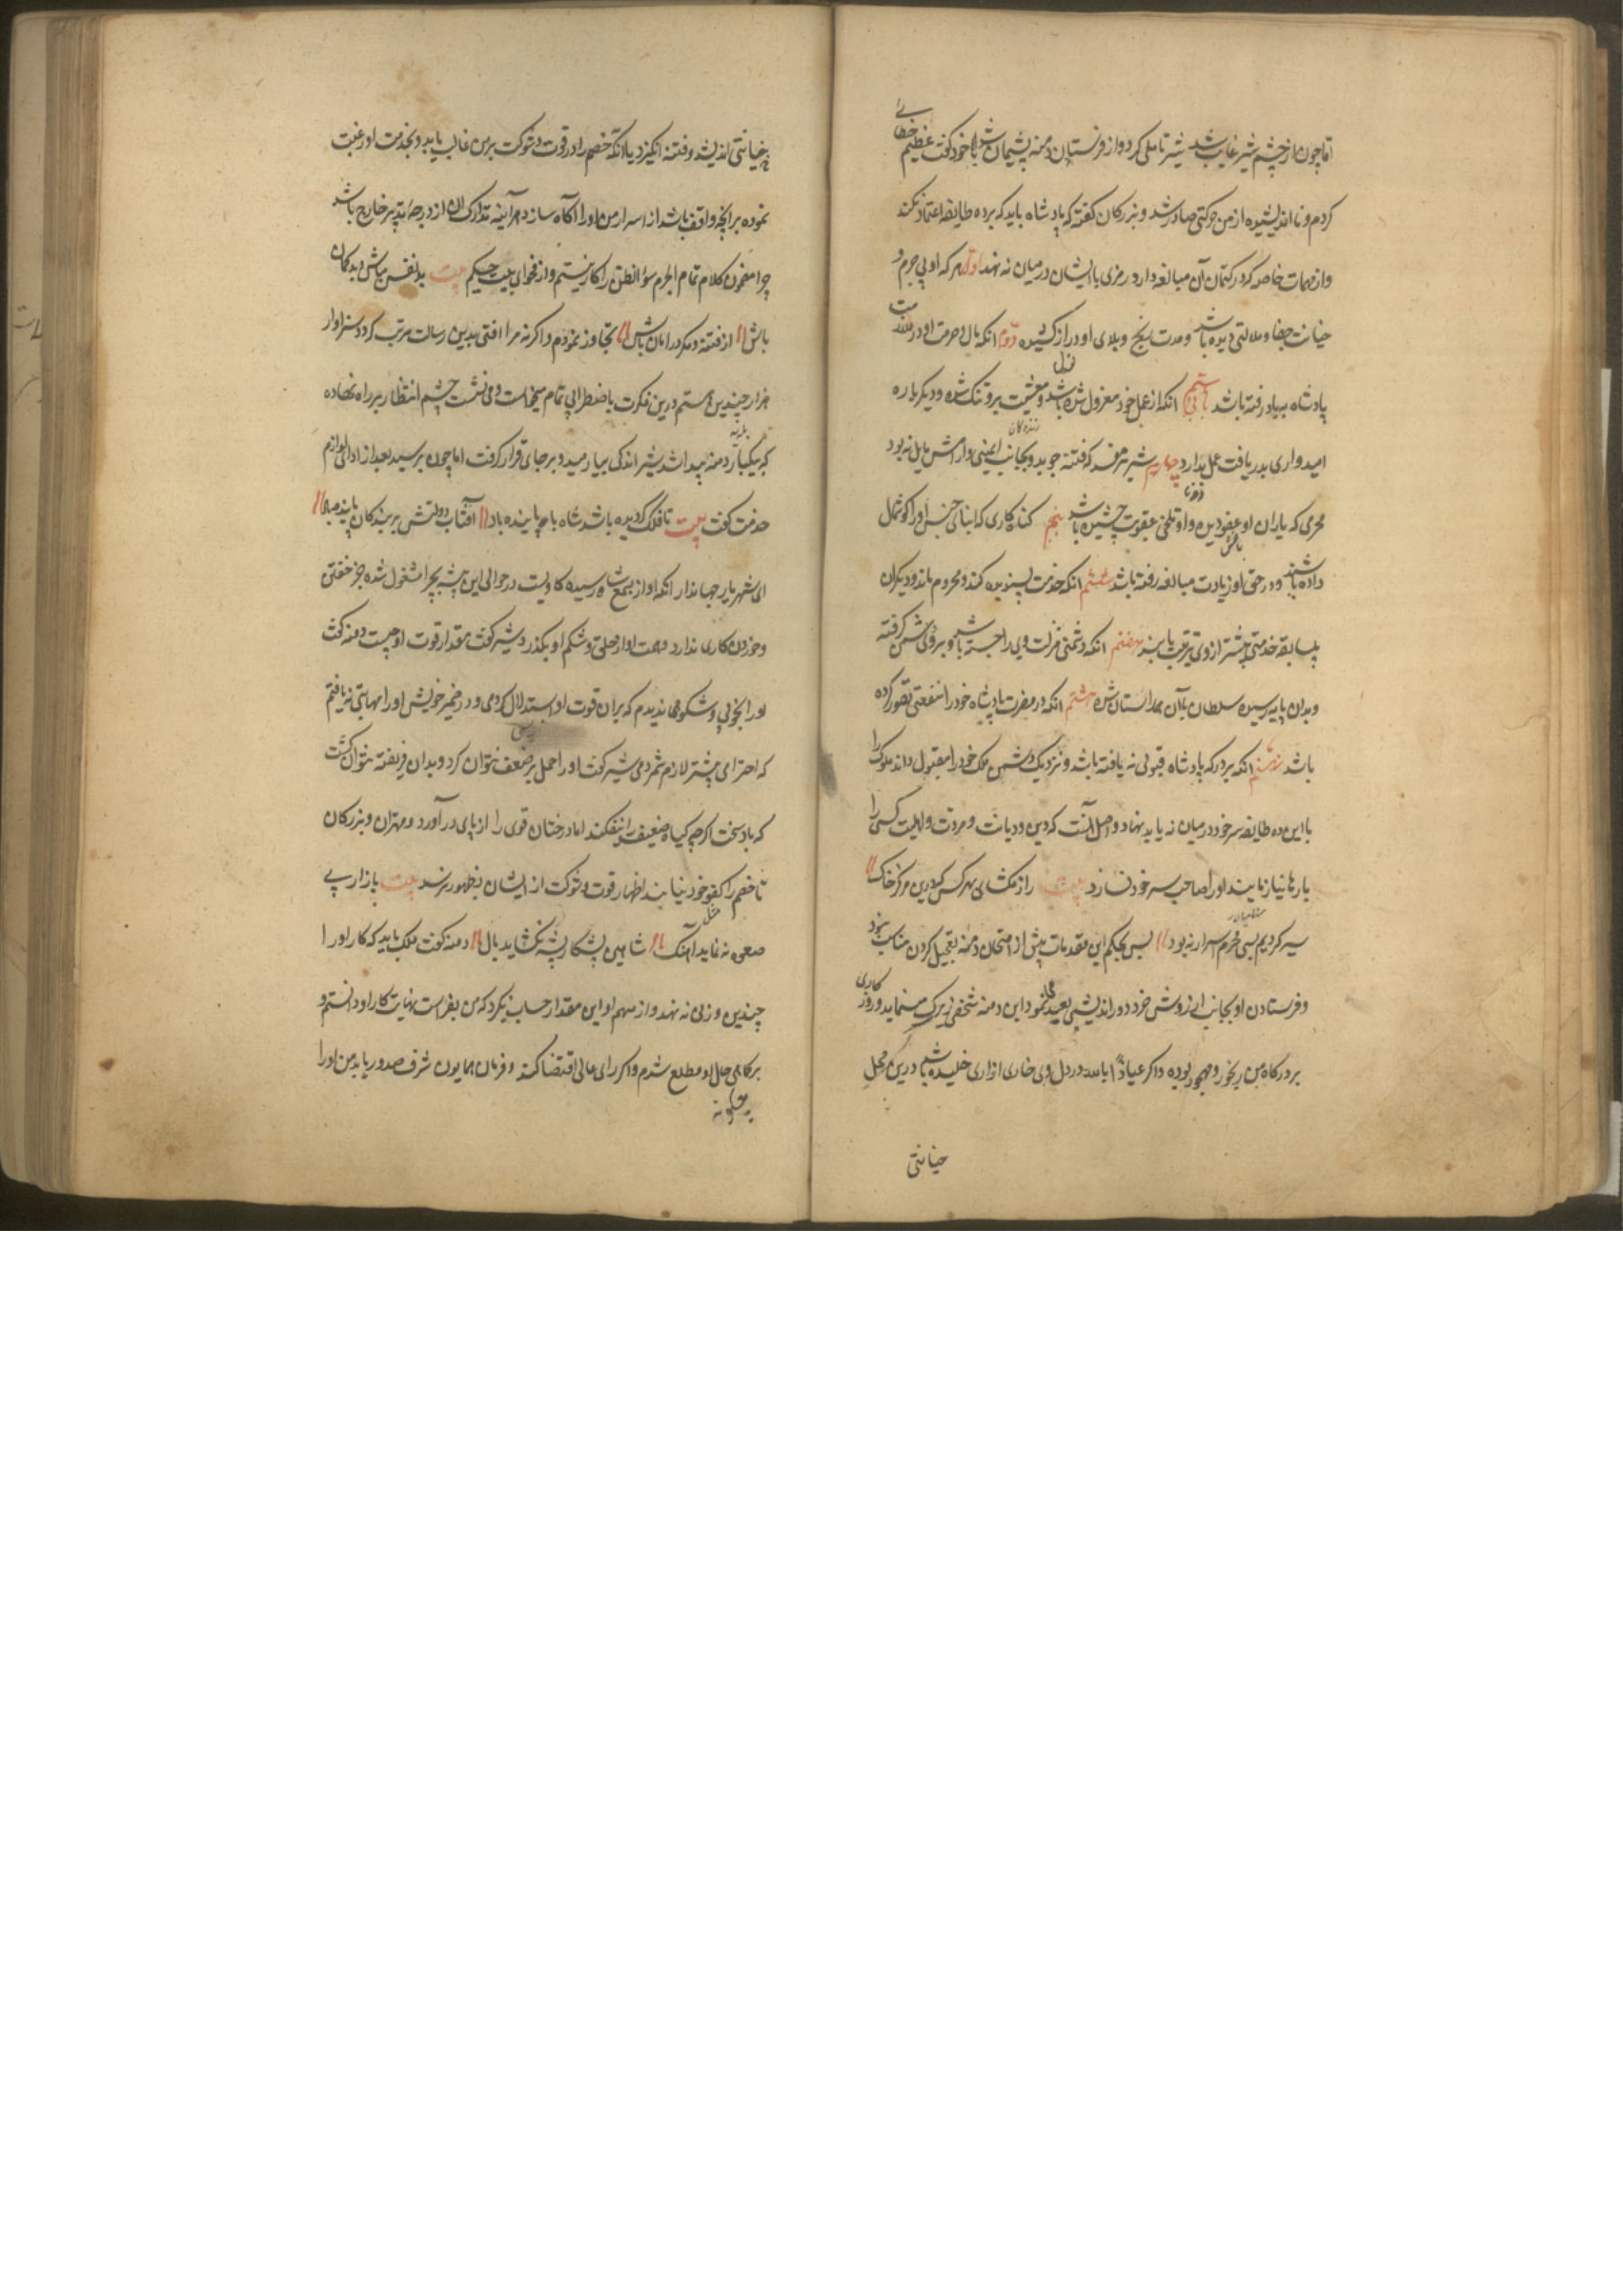 اما چون از چشم شیر غایب شد شیر تاملی کرد و از فرستادن دمنه پشیمان شد با خود گفت عظیم خطائی
کردم و نا اندیشیده از من حرکتی صادر شد و بزرگان گفته که پادشاه باید که بر ده طایفه اعتماد نکند
و از مهمات خاصه که در کتمان آن مبالغه دارد رمزی با ایشان در میان نه نهد اول هر که او بی جرم و
خیانت جفا و ملالتی دیده باشد و مدت رنج و بلای او دراز کشیده دوم آنکه مال و حرمت او در ملازمت
پادشاه به باد رفته باشد سیم آنکه از عمل خود معزول شده باشد و معیشت برو تنگ شده و دیگر باره
امیدواری بدریافت عمل ندارد چهارم شریر مفسد که فتنه جوید و بجانب ایمنی و آرامش مایل نه بود
مجرمی که یاران او عفو دیده و او تلخی عقوبت چشیده باشد پنجم گناه کاری که ابنای جنس او را گوشمال
داده باشند و در حق او زیادت مبالغه رفته باشد ششم آنکه خدمت پسندیده کند و محروم ماند و دیگران
بی سابقه خدمتی بیشتر از وی تربیت یابند هفتم آنکه دشمنی منزلت وی را جسته باشد و برو پیشی گرفته
و بدان پایه رسیده سلطان با آن همداستان شده هشتم آنکه در مضرت پادشاه خود را منفعتی تصور کرده
باشد نهم آنکه بر درگه پادشاه قبولی نه یافته باشد و نزدیک دشمن ملک خود را مقبول داند ملوک را
با این ده طایفه سر خود در میان نه باید نهاد و اصل آنست که دین و دیانت و مروت و اهلیت کسی را
بارها نیازمایند او را صاحب سر خود نسازد بیت راز مگشای بهر کس که درین مرکز خاک
سیر کردیم بسی محرم اسرار نه بود پس بحکم این مقدمات پیش از امتحان دمنه تعجیل کردن مناسب نبود
و فرستادن او بجانب از روش خرد دور اندیشی بعید نمود این دمنه شخصی زیرک مینماید و روز کاری
بر درگاه من رنجور و مهجور بوده و اگر عیاذا بالله در دل وی خاری ازاری خلیده باشد درین محل
خیانتی
خیانتی اندیشد و فتنه انگیزد یا آنکه خصم را در قوت و شوکت بر من غالب یابد و بخدمت او رغبت
نموده بر آنچه واقف باشد از اسرار من او را آگاه سازد هر آینه تدارک آن از درجه تدبیر خارج باشد
چرا مضمون کلام تمام الحزم سوء الظن را کار نبستم و از فحوای بیت حکیم بیت بد نفس مباش و بد گمان
باش از فتنه و مکر در امان باش تجاوز نمودم و اگر نه مرا آفتی بدین رسالت مرتب گردد سزاوار
هزار چندین هستم درین فکرت باضطرابی تمام میخاست و می نشست چشم انتظار بر راه نهاده
که بیکبار دمنه پیدا شد شیر اندکی بیارمید و بر جای قرار گرفت اما چون برسید بعد از ادای لوازم
خدمت گفت بیت تا فلک گردیده باشد شاه ما پاینده باد آفتاب دولتش بر بندگان پاینده باد
ای شهریار جهاندار آنکه آواز بسمع شما رسیده گاویست در حوالی این بیشه بچرا مشغول شده جز خفتن
و خوردن کاری ندارد و همت او از حلق و شکم او بگذرد شیر گفت مقدار قوت او چیست دمنه گفت
او را نخوتی و شکوهی ندیدم که بر آن قوت او استدلال کردمی و در ضمیر خویش او را مهابتی نیافتم
که احترامی بیشتر لازم شمردمی شیر گفت او را حمل بر ضعف نتوان کرد و بدان فریفته نتوان گشت
که باد سخت اگرچه گیاه ضعیف را نیفکند اما درختان قوی را از پای در آورد و مهتران و بزرگان
تا خصم را کفو خود نیابند اظهار قوت و شوکت از ایشان بظهور نرسد بیت باز از پی
صعوه نه نماید آهنگ شاهین بشکار پشه نگشاید بال دمنه گفت ملک باید که کار او را
چندین وزنی نه نهد و از مهم او این مقدار حساب نگیرد که من بفراست نهایت کار او دانستم و
بر کماهی حال او مطلع شدم و اگر رای عالی اقتضا کند و فرمان همایون شرف صدور یابد من او را